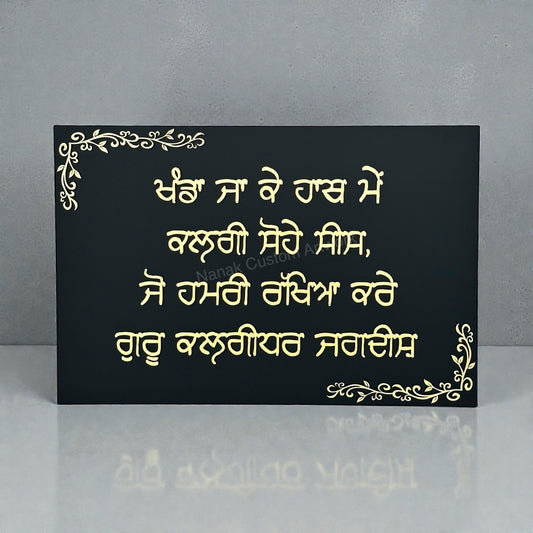 ਖੰਡਾ ਜਾ ਕੇ ਹਾਥ ਮੇਂ
ਕਲਗੀ ਸੋਹੇ ਸੀਸ,
Nanak Custom
ਜੋ ਹਮਰੀ ਰੱਖਿਆ ਕਰੇ
ਗੁਰੂ ਕਲਗੀਧਰ ਜਗਦੀਸ਼